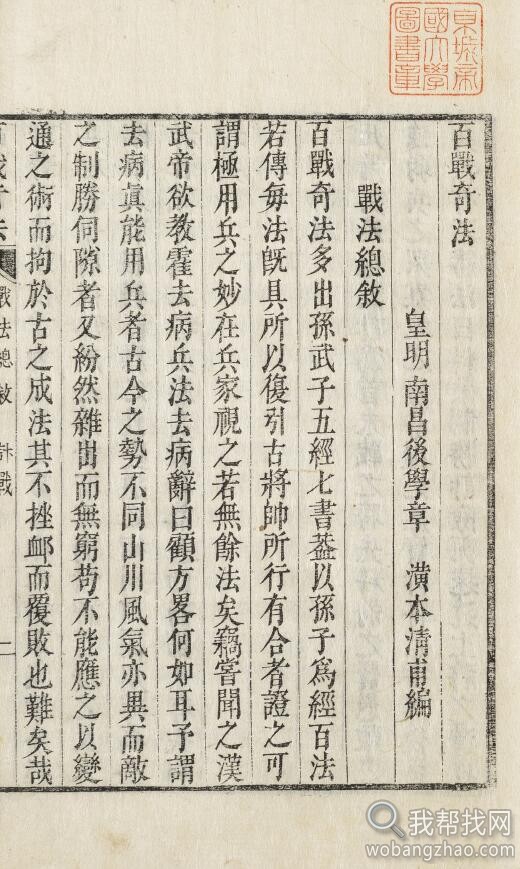 百戰奇法
皇明 南昌後學章 潢本清甫編
戰法總敘
百戰奇法多出孫武子五經七書葢以孫子爲經百法
若傳每法既具所以復引古將帥所行有合者證之可
謂極用兵之妙在兵家視之若無餘法矣竊嘗聞之漢
武帝欲教霍去病兵法去病辭曰顧方畧何如耳予謂
去病眞能用兵者古今之勢不同山川風氣亦異而敵
之制勝伺隙者又紛然雜出而無窮苟不能應之以變
通之術而拘於古之成法其不挫衄而覆敗也難矣哉
戰法總敘 計戰
東坡帝
國大學
圖書章
我帮找网
wobangzhao.com